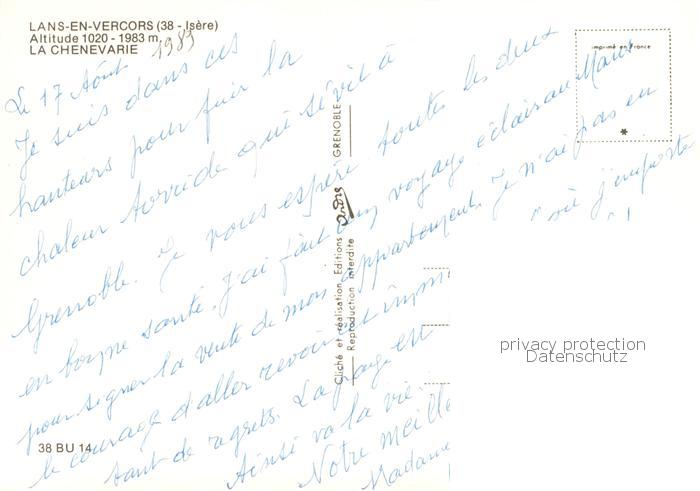 LANS-EN-VERCORS (38 - Isère)
Altitude 1020 - 1983 m.
LA CHENEVARIE
imprimé en France
Le 17 Août 1989
Je suis dans ces
hauteurs pour fuir la
chaleur torride qui sévit à
Grenoble. Je vous espère toutes les deux
en bonne santé. J'ai fait un voyage éclair au Mans
pour signer la vente de mon appartement. Je n'ai pas eu
le courage d'aller revoir
tant de regrets. La
Ainsi va la vie.
Notre meille
Madame
où j'emporte
Cliché et réalisation Editions André GRENOBLE
Reproduction interdite
38 BU 14
privacy protection
Datenschutz